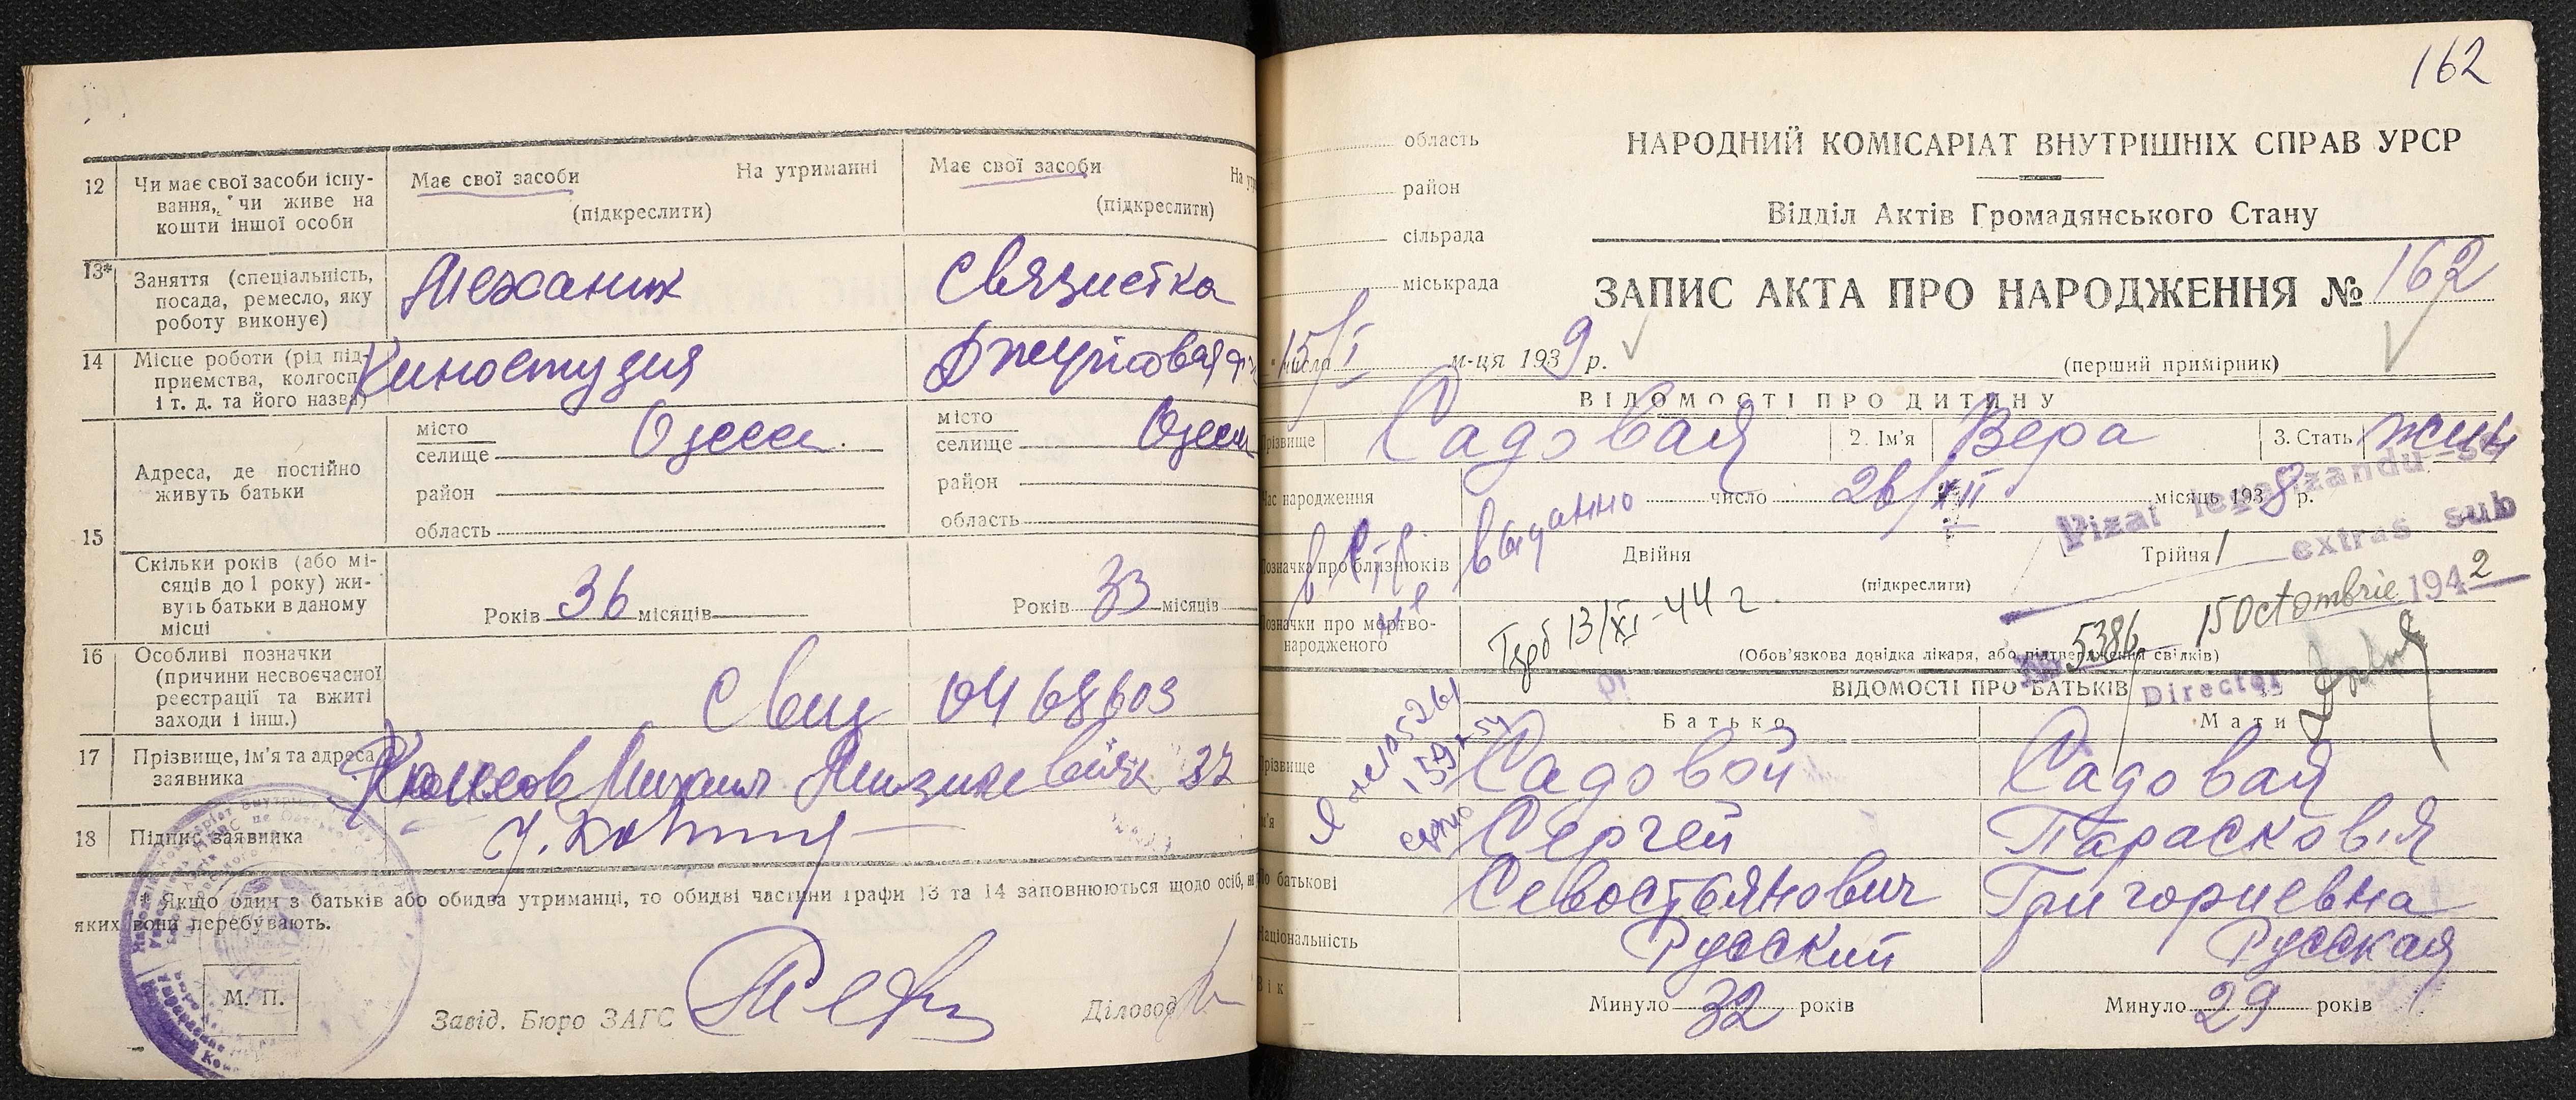 12 Чи має свої засоби існу-
вання, чи живе на
кошти іншої особи
Має свої засоби На утриманні
(підкреслити)
Має свої засоби
(підкреслити)
13* Заняття (спеціальність,
посада, ремесло, яку
роботу виконує)
Механик
Связистка
14 Місце роботи (рід під-
приємства, колгосп
і т. д. та його назва)
Киностудия
Джутовая
15 Адреса, де постійно
живуть батьки
місто
селище Одесса
район
область
місто
селище Одесса
район
область
Скільки років (або мі-
сяців до 1 року) жи-
вуть батьки в даному
місці
Років 36 місяців
Років 33 місяців
16 Особливі позначки
(причини несвоєчасної
реєстрації та вжиті
заходи і інш.)
0468603
17 Прізвище, ім'я та адреса
заявника
Михаил 37
18 Підпис заявника
* Якщо один з батьків або обидва утриманні, то обидві частини графи 13 та 14 заповнюються щодо осіб, на
яких вони перебувають.
М. П.
Завід. Бюро ЗАГС
Діловод
162
область
район
сільрада
міськрада
НАРОДНИЙ КОМІСАРІАТ ВНУТРІШНІХ СПРАВ УРСР
Відділ Актів Громадянського Стану
ЗАПИС АКТА ПРО НАРОДЖЕННЯ № 162
15/I м-ця 1939 р.
(перший примірник)
ВІДОМОСТІ ПРО ДИТИНУ
Прізвище Садовая 2. Ім'я Вера 3. Стать жін
Час народження число 26/XII місяць 1938 р.
Vizat legalizandu-se
extras sub
15 Octombrie 1942
№ 5386
Director
Позначка про близнюків Двійня Трійня
(підкреслити)
выданно
Позначки про мертво-
народженого
13/XI-44 г.
(Обов'язкова довідка лікаря, або підтвердження свідків)
ВІДОМОСТІ ПРО БАТЬКІВ
Батько Мати
Прізвище Садовой Садовая
Ім'я Сергей Парасковія
По батькові Севостьянович Григориевна
Національність Русский Русская
Вік Минуло 32 років Минуло 29 років